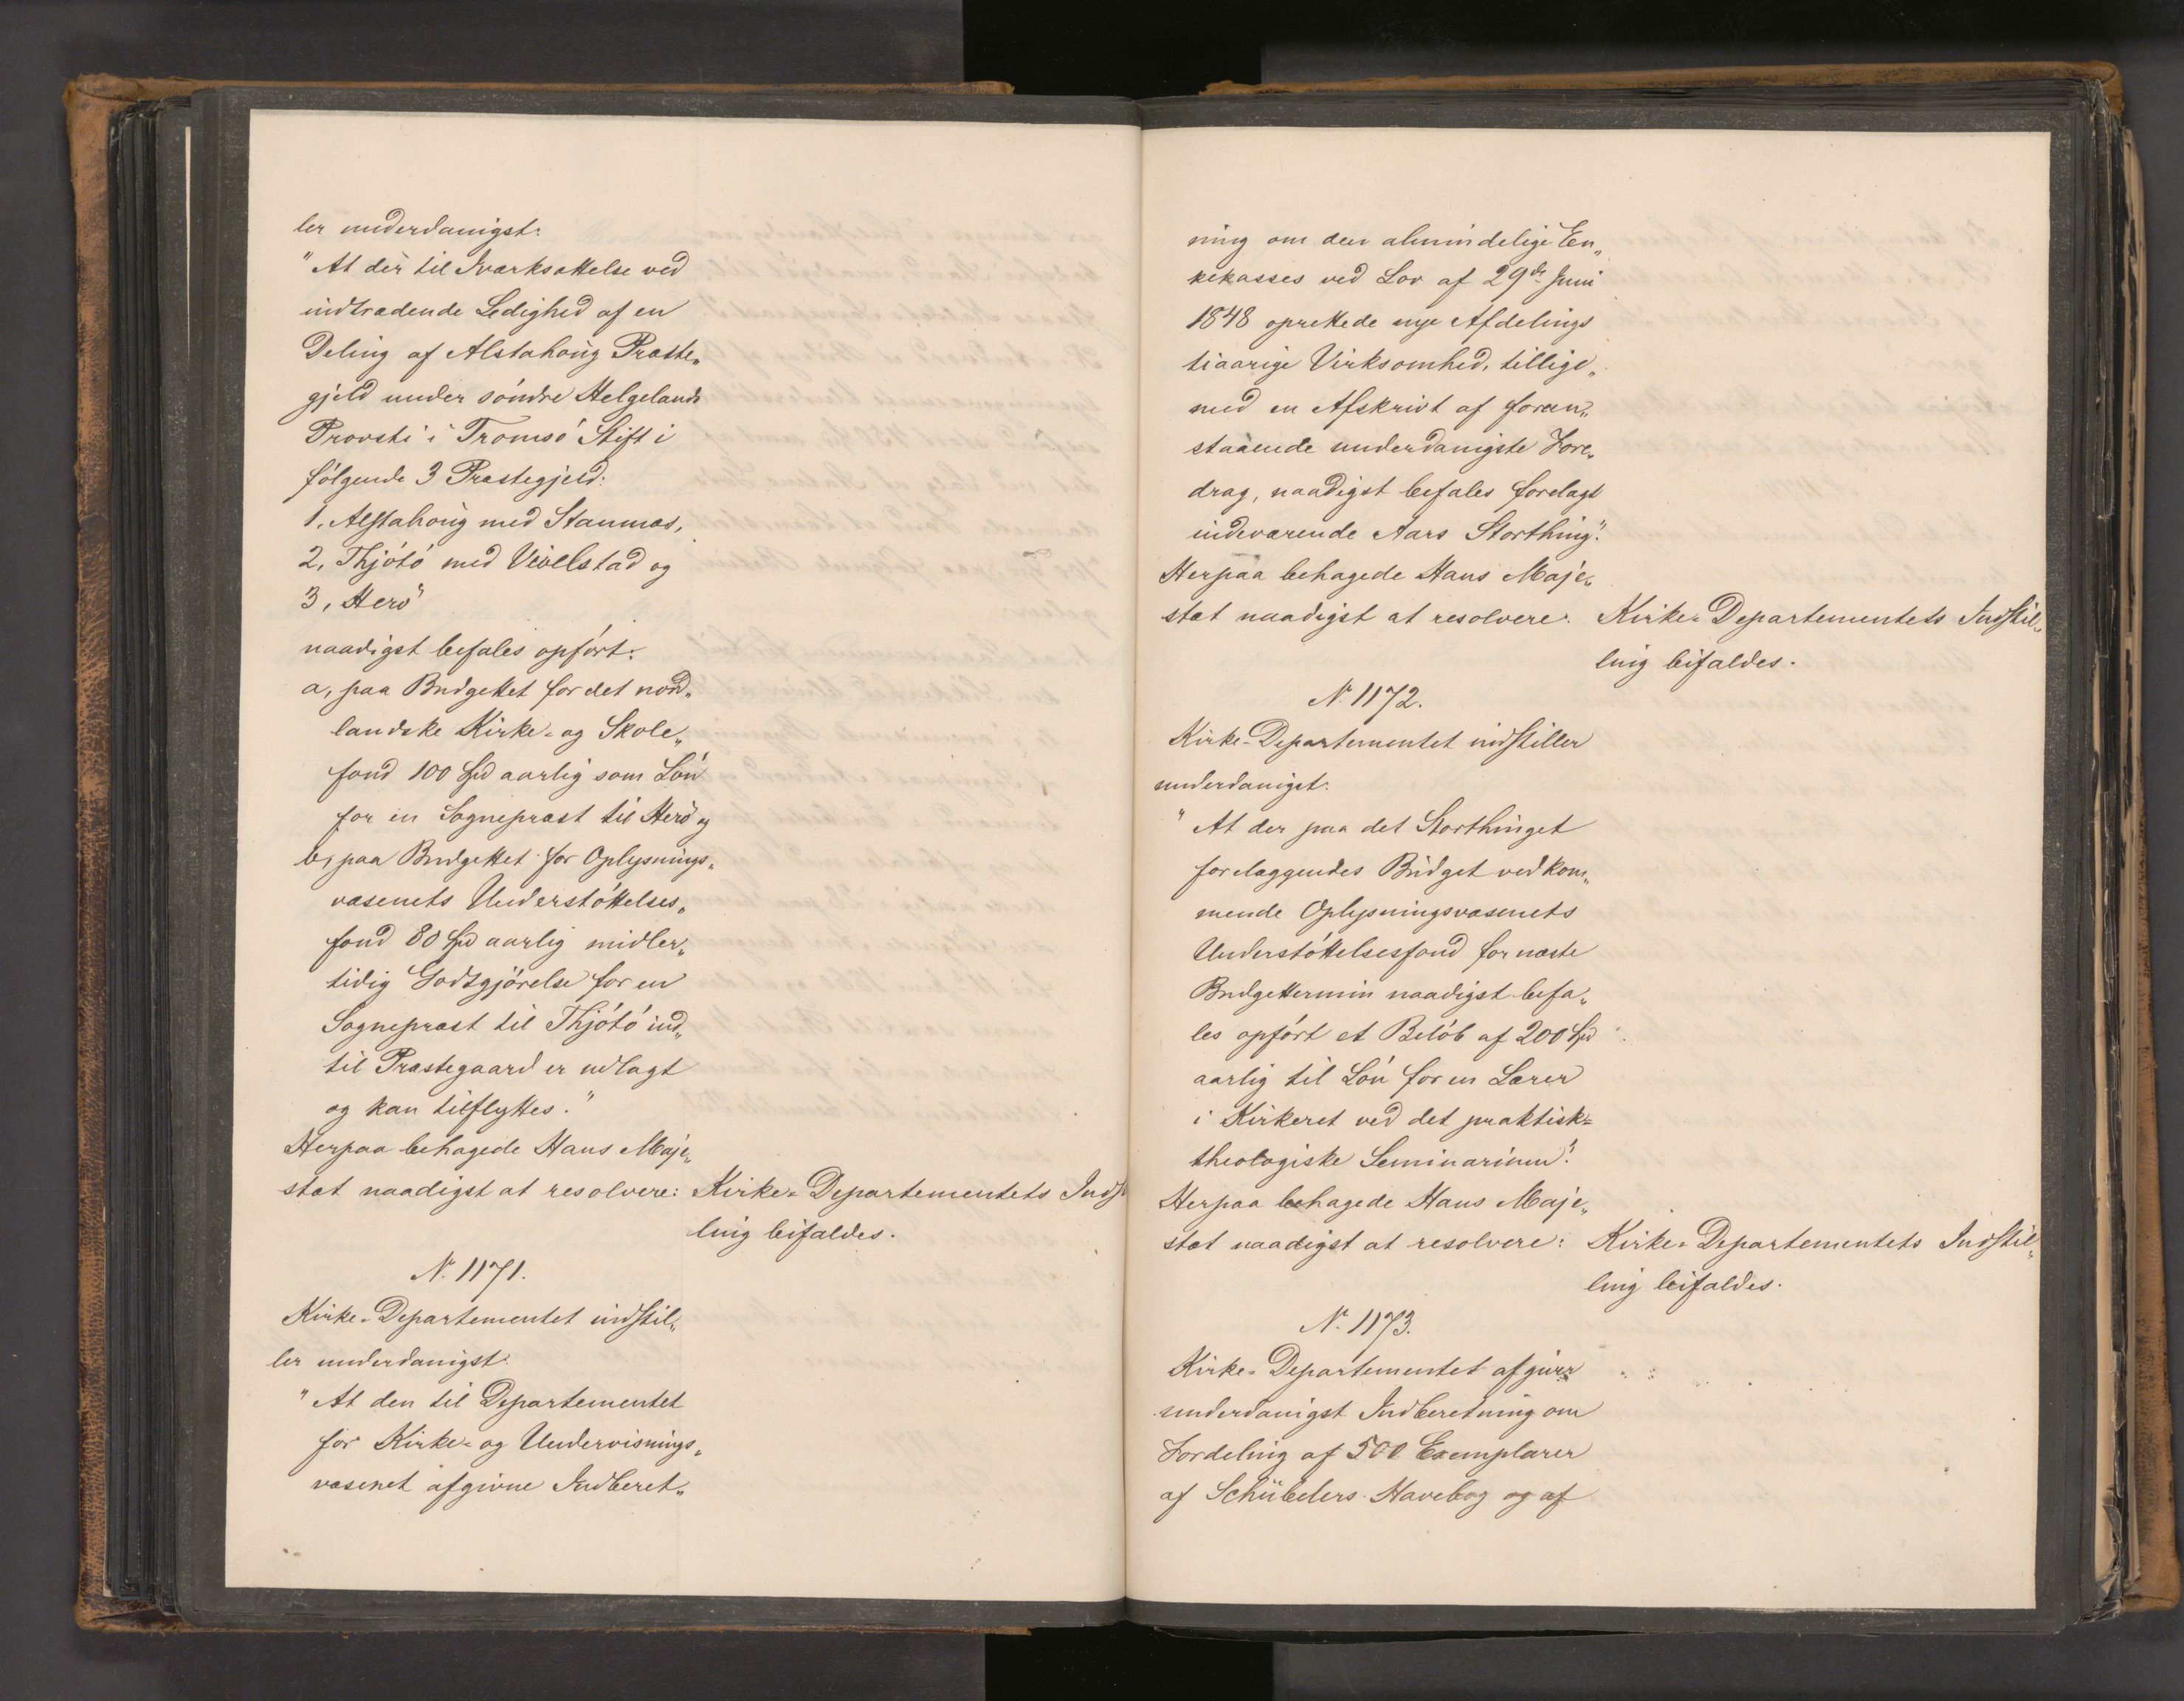 ler underdanigst:
"At der til Iværksættelse ved
indtrædende Ledighed af en
Deling af Alstahoug Præste„
gjeld under søndre Helgelands
Provsti i Tromsø Stift i
følgende 3 Præstegjeld:
1, Alstahoug med Stamnæs,
2, Thjøtø med Vevelstad og
3, Herø"
naadigst befales opført:
a, paa Budgettet for det nord„
landske Kirke- og Skole„
fond 100 Spd aarlig som Løn
for en Sognepræst til Herø og
b, paa Budgettet for Oplysnings„
væsenets Understøttelses„
fond 80 Spd aarlig midler„
tidig Godtgjørelse for en
Sognepræst til Thjøtø ind„
til Præstegaard er udlagt
og kan tilflyttes."
Herpaa behagede Hans Maje„
stæt naadigst at resolvere: Kirke-Departementets Indst
ling bifaldes.
N. 1171.
Kirke-Departementet indstil„
ler underdanigst:
"At den til Departementet
for Kirke- og Undervisnings„
væsenet afgivne Indberet„
ning om den almindelige En„
kekasses ved Lov af 29de Juni
1848 oprettede nye Afdelings
tiaarige Virksomhed, tillige„
med en Afskrivt af foran„
staaende underdanigste Fore„
drag, naadigst befales forelagt
indeværende Aars Storthing".
Herpaa behagede Hans Maje„
stæt naadigst at resolvere: Kirke-Departementets Indstil„
ling bifaldes.
N. 1172.
Kirke-Departementet indstiller
underdanigst:
"At der paa det Storthinget
forelæggendes Budget vedkom„
mende Oplysningsvæsenets
Understøttelsesfond for næste
Budgettermin naadigst befa„
les opført et Beløb af 200 Spd
aarlig til Løn for en Lærer
i Kirkeret ved det praktisk-
theologiske Seminarium".
Herpaa behagede Hans Maje„
stæt naadigst at resolvere: Kirke-Departementets Indstil„
ling bifaldes.
N. 1173.
Kirke-Departementet afgiver
underdanigst Indberetning om
Fordeling af 500 Exemplarer
af Schübelers Havebog og af